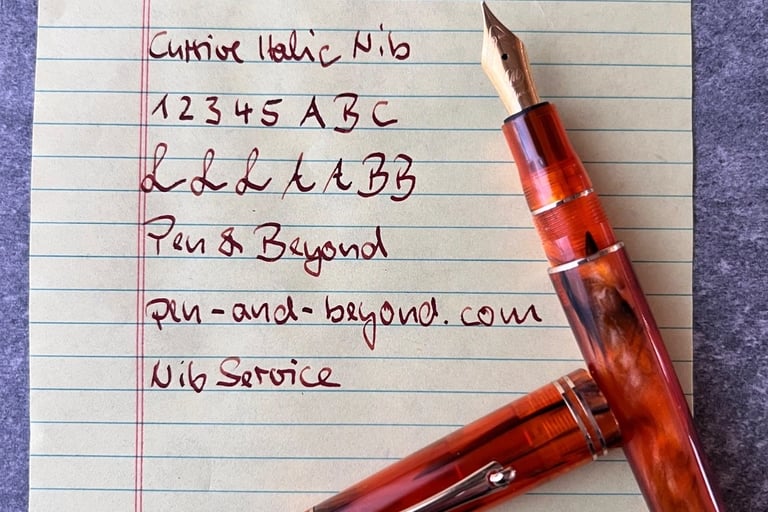 Cursive Italic Nib
1 2 3 4 5 A B C
L L L t t B B
Pen & Beyond
pen-and-beyond.com
Nib Service